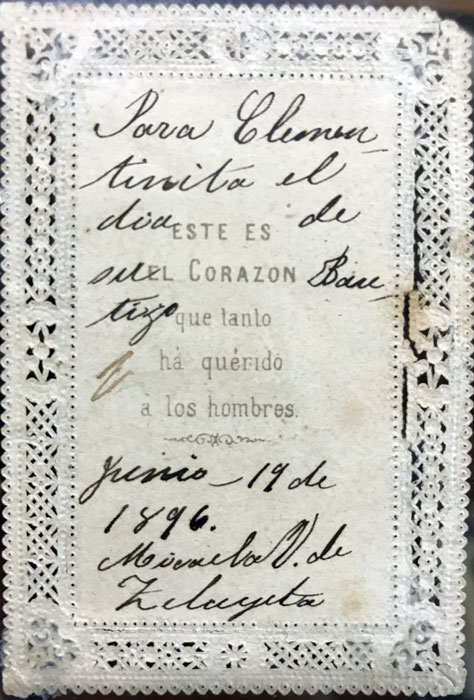 Para Clemen-
tinita el
dia de
ESTE ES
su Bau-
EL CORAZON
tizo
que tanto
há quérido
à los hombres.
Junio - 19 de
1896.
Micaela V. de
Zelayeta